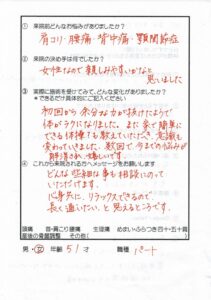 ① 来院前どんなお悩みがありましたか?
肩コリ・腰痛・背中痛・顎関節症
② 来院の決め手は何でしたか?
女性なので親しみやすいかなと
思いました
③ 実際に施術を受けてみて、どんな変化がありましたか?
★できるだけ具体的にご記入ください
初回から余分な力が抜けたようで
体がラクになりました。また家で簡単に
できる体操も教えていただき、意識も
変わってきました。数回で、今までの悩みが
解消され、嬉しいです。
④ これから来院される方へメッセージをお願いします
どんな些細な事も相談にのって
いただけます。
心身共に、リラックスできるので
長く通いたい、と思えるところです。
頭痛 首・肩こり 腰痛 生理痛 めまい・ふらつき 四十・五十肩
産後の骨盤調整 その他( )
男・女 年齢 51 才 職種 パート